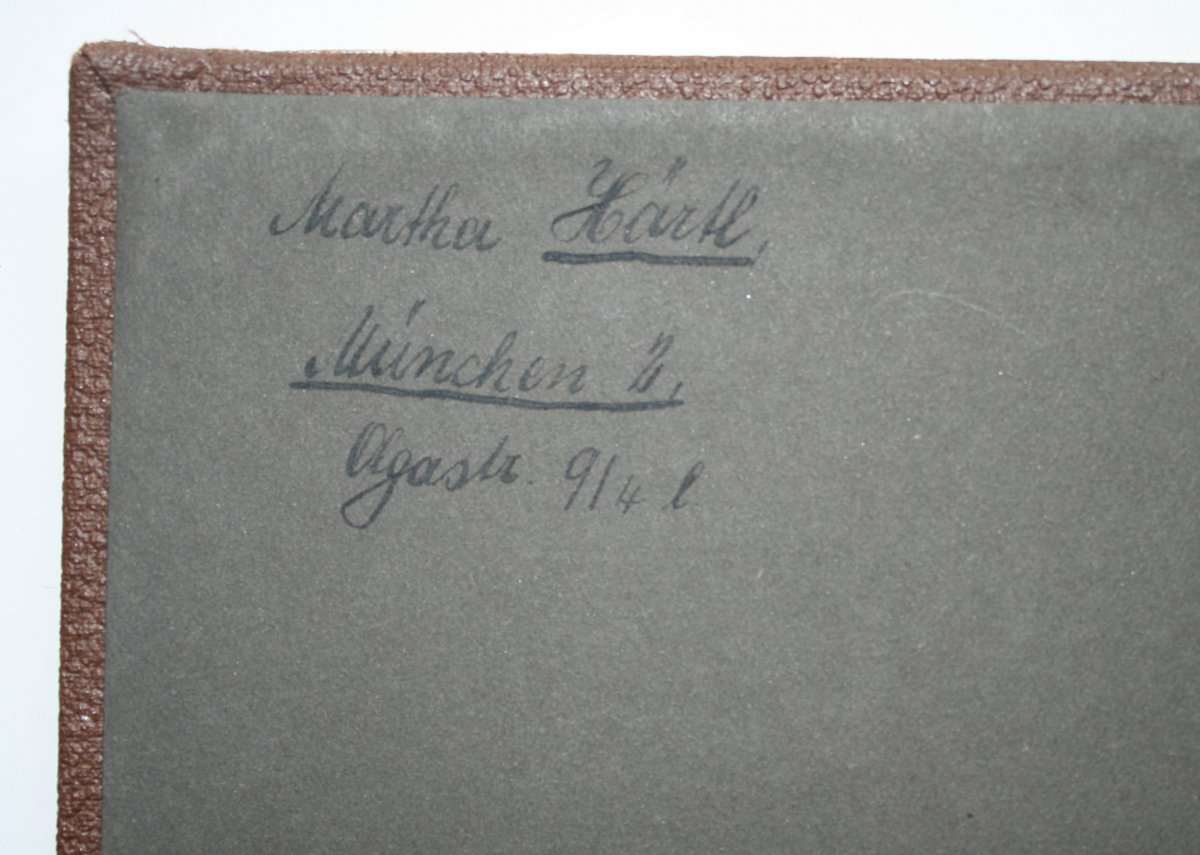 Martha Härtl,
München 2,
Olgastr. 9/4 l